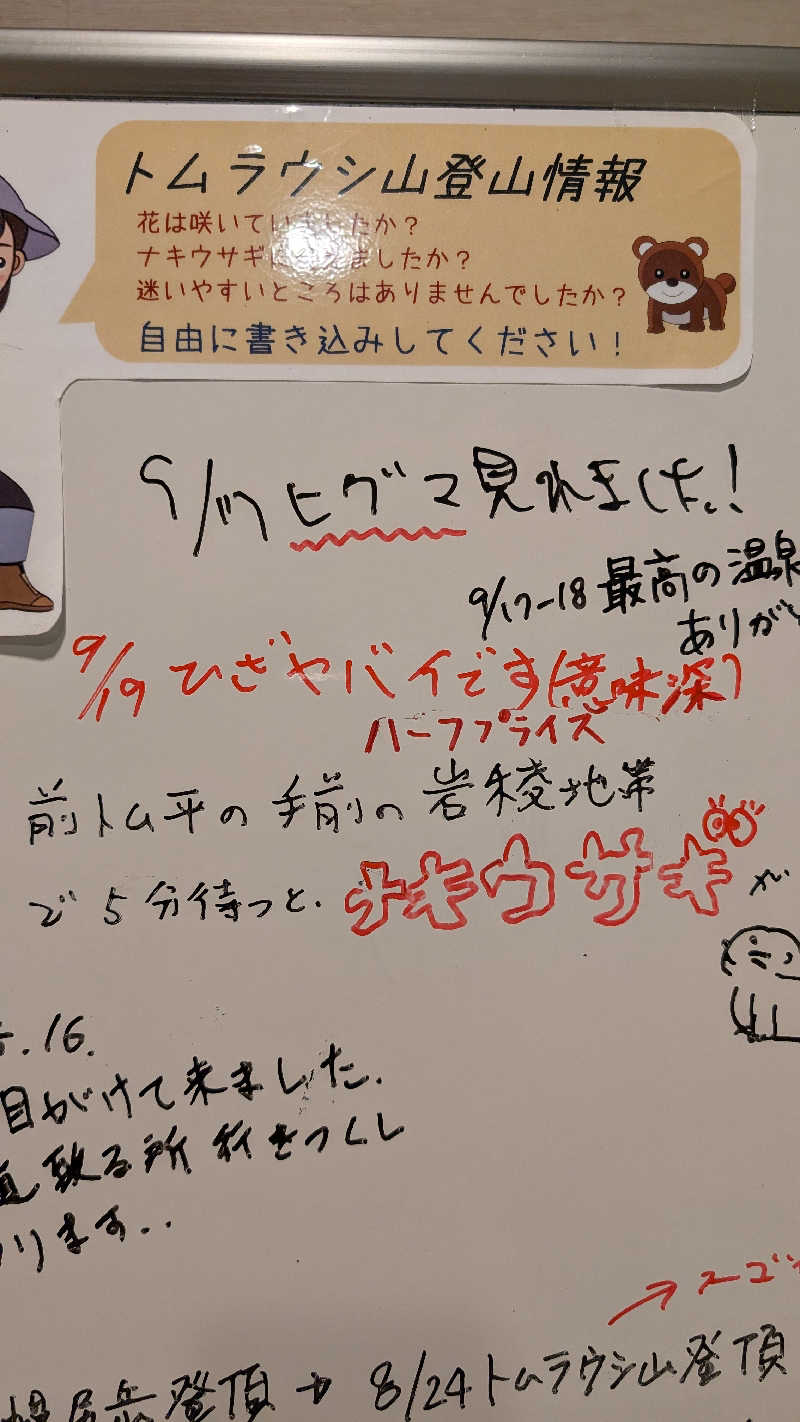 トムラウシ山登山情報
花は咲いていましたか？
ナキウサギに会えましたか？
迷いやすいところはありませんでしたか？
自由に書き込みしてください！
9/17 ヒグマ見れました!
9/17-18 最高の温泉
ありがと
9/19 ひざヤバイです(意味深)
ハーフプライズ
前トム平の手前の岩稜地帯
で5分待つと、ナキウサギが
.16.
目がけて来ました.
散る所 行きつくし
ります..
スーゴ
岳登頂 → 8/24トムラウシ山登頂